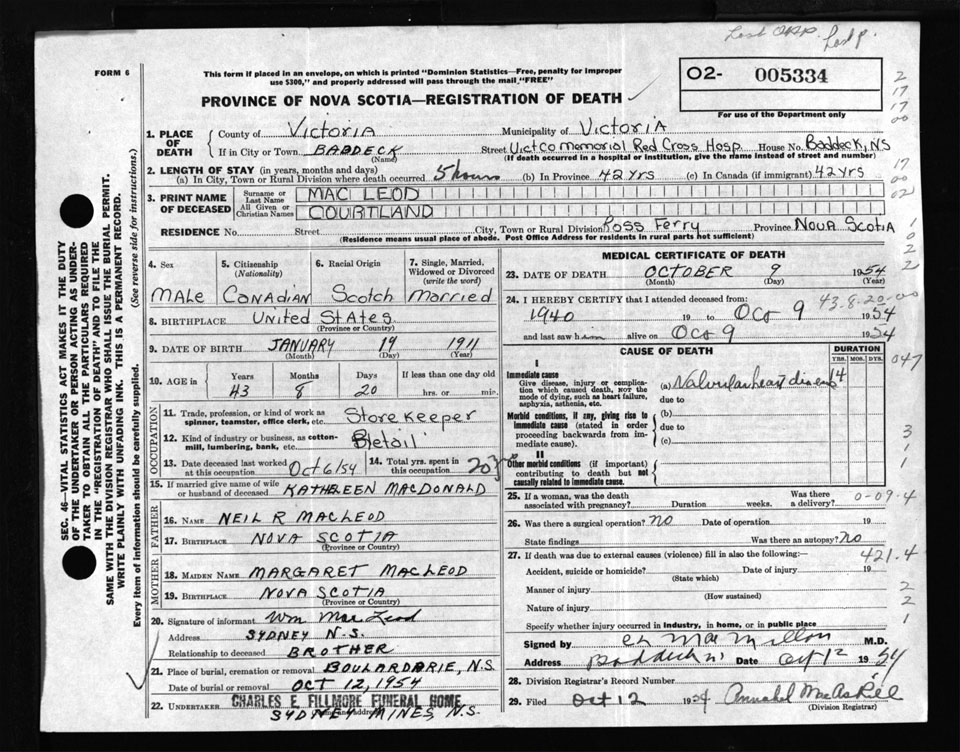 Lost opp. Lost p.
FORM 6
This form if placed in an envelope, on which is printed "Dominion Statistics—Free, penalty for improper
use $300," and properly addressed will pass through the mail "FREE"
O2- 005334
For use of the Department only
PROVINCE OF NOVA SCOTIA—REGISTRATION OF DEATH
1. PLACE OF DEATH County of Victoria Municipality of Victoria
If in City or Town BADDECK (Name) Street Vict co memorial Red Cross Hosp. House No. Baddeck, NS
(If death occurred in a hospital or institution, give the name instead of street and number)
2. LENGTH OF STAY (in years, months and days)
(a) In City, Town or Rural Division where death occurred 5 hours (b) In Province 42 yrs (c) In Canada (if immigrant) 42 yrs
3. PRINT NAME OF DECEASED Surname or Last Name MAC LEOD
All Given or Christian Names COURTLAND
RESIDENCE No. Street City, Town or Rural Division Ross Ferry Province Nova Scotia
(Residence means usual place of abode. Post Office Address for residents in rural parts not sufficient)
4. Sex 5. Citizenship (Nationality) 6. Racial Origin 7. Single, Married, Widowed or Divorced (write the word)
Male Canadian Scotch Married
8. BIRTHPLACE United States
(Province or Country)
9. DATE OF BIRTH JANUARY 19 1911
(Month) (Day) (Year)
10. AGE in Years Months Days If less than one day old
43 8 20 hrs. or min.
OCCUPATION
11. Trade, profession, or kind of work as spinner, teamster, office clerk, etc. Store Keeper
12. Kind of industry or business, as cotton-mill, lumbering, bank, etc. Retail
13. Date deceased last worked at this occupation Oct 6/54 14. Total yrs. spent in this occupation 20 yrs
15. If married give name of wife or husband of deceased KATHLEEN MACDONALD
FATHER
16. NAME NEIL R MACLEOD
17. BIRTHPLACE NOVA SCOTIA
(Province or Country)
MOTHER
18. MAIDEN NAME MARGARET MACLEOD
19. BIRTHPLACE NOVA SCOTIA
(Province or Country)
20. Signature of informant Wm MacLeod
Address SYDNEY N.S.
Relationship to deceased BROTHER
21. Place of burial, cremation or removal BOULARDARIE, N.S
Date of burial or removal OCT 12, 1954
22. UNDERTAKER CHARLES E. FILLMORE FUNERAL HOME
(Name and Address)
SYDNEY MINES, N.S.
MEDICAL CERTIFICATE OF DEATH
23. DATE OF DEATH OCTOBER 9 1954
(Month) (Day) (Year)
43-8-20-00
24. I HEREBY CERTIFY that I attended deceased from:
1940 19 to Oct 9 1954
and last saw him alive on Oct 9 1954
CAUSE OF DEATH DURATION
YRS. MOS. DYS.
047
I
Immediate cause
Give disease, injury or complication which caused death, NOT the mode of dying, such as heart failure, asphyxia, asthenia, etc.
(a) Valvular heart disease 14
due to
Morbid conditions, if any, giving rise to immediate cause (stated in order proceeding backwards from immediate cause)
(b)
due to
(c)
II
Other morbid conditions (if important) contributing to death but not causally related to immediate cause.
25. If a woman, was the death associated with pregnancy? Duration weeks. Was there a delivery?
0-09-4
26. Was there a surgical operation? no Date of operation 19
State findings Was there an autopsy? no
27. If death was due to external causes (violence) fill in also the following:—
421.4
Accident, suicide or homicide? Date of injury 19
(State which)
Manner of injury
(How sustained)
Nature of injury
Specify whether injury occurred in industry, in home, or in public place
Signed by C L MacMillan M.D.
Address Baddeck Date Oct 12 1954
28. Division Registrar's Record Number
29. Filed Oct 12 1954 Annabel MacAskill
(Division Registrar)
2
17
17
00
17
00
02
1
0
2
2
3
1
1
2
2
1
SEC. 46—VITAL STATISTICS ACT MAKES IT THE DUTY
OF THE UNDERTAKER OR PERSON ACTING AS UNDER-
TAKER TO OBTAIN ALL THE PARTICULARS REQUIRED
IN THE "REGISTRATION OF DEATH" AND TO FILE THE
SAME WITH THE DIVISION REGISTRAR WHO SHALL ISSUE THE BURIAL PERMIT.
WRITE PLAINLY WITH UNFADING INK. THIS IS A PERMANENT RECORD.
Every item of information should be carefully supplied. (See reverse side for instructions.)